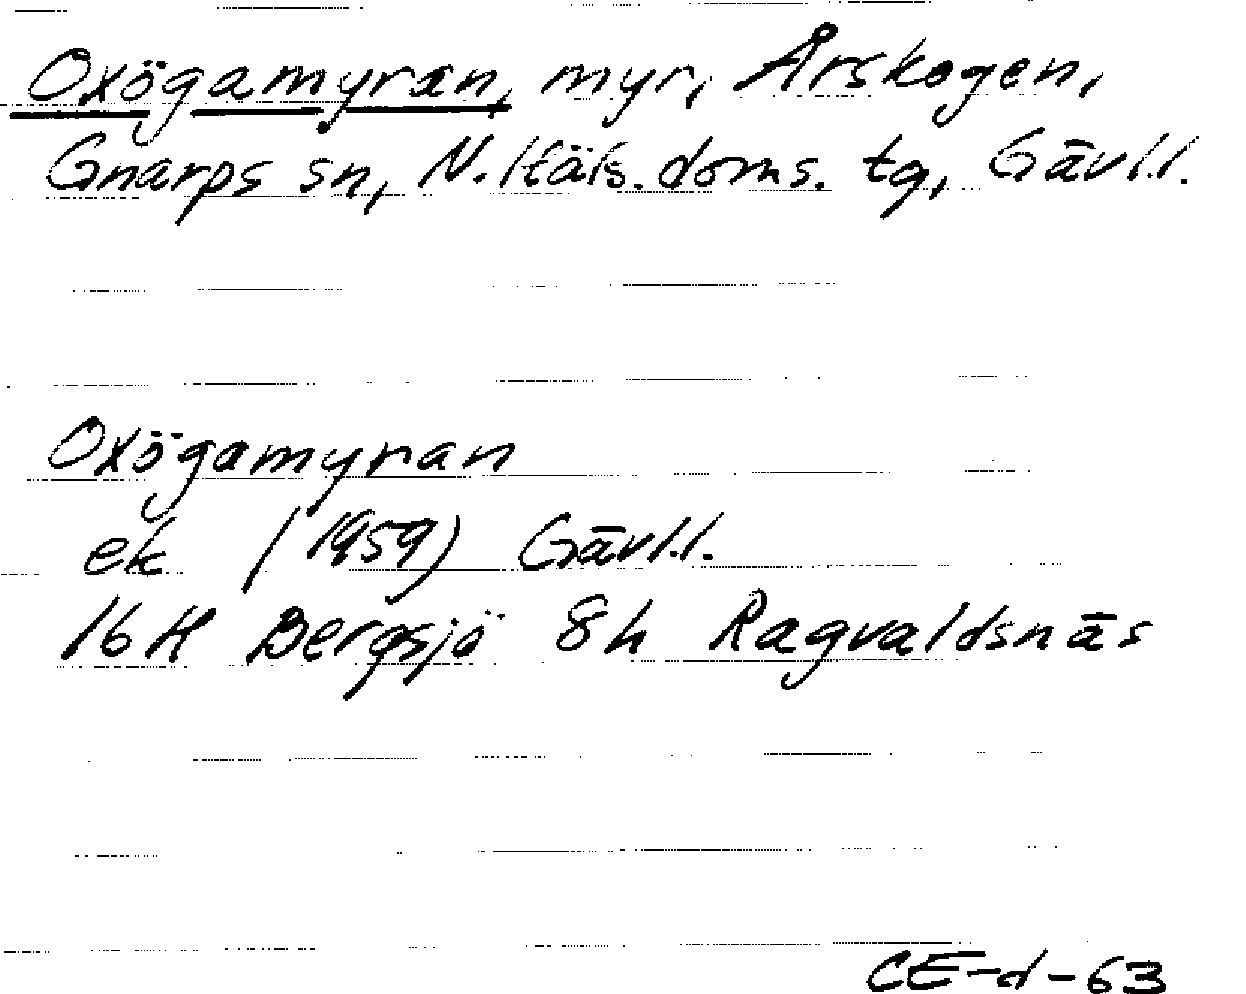 Oxögamyran, myr, Årskogen,
Gnarps sn, N. Häls. doms. tg, Gävl.l.
Oxögamyran
ek (1959) Gävl.l.
16H Bergsjö 8h Ragvaldsnäs
CE-d-63